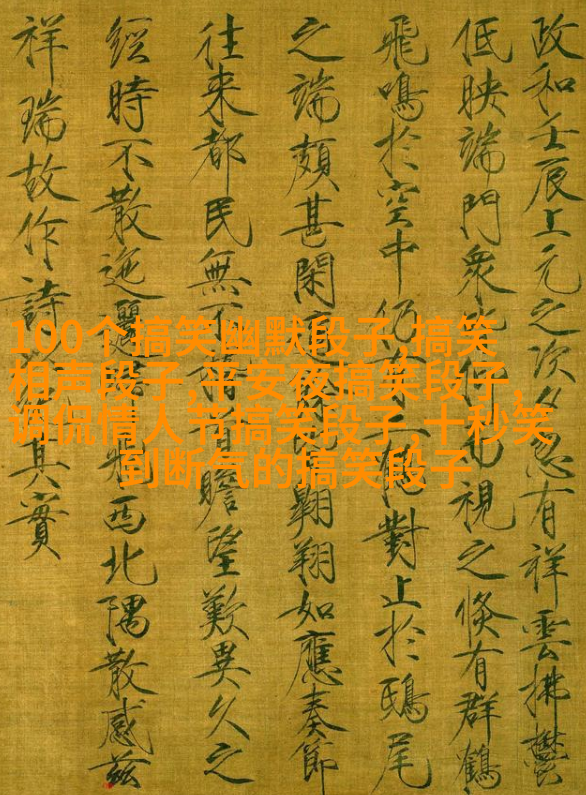 政和壬辰上元之次夕忽有祥雲拂鬱
低映端門眾視之倏有群鶴
飛鳴於空中仍有二對止於鴟尾
之端頗甚閑翱翔如應奏節
往來都民無不稽首瞻望歎異久之
經時不散迤邐西北隅散感茲
祥瑞故作詩其實
100个搞笑幽默段子,搞笑
相声段子,平安夜搞笑段子,
调侃情人节搞笑段子,十秒笑
到断气的搞笑段子